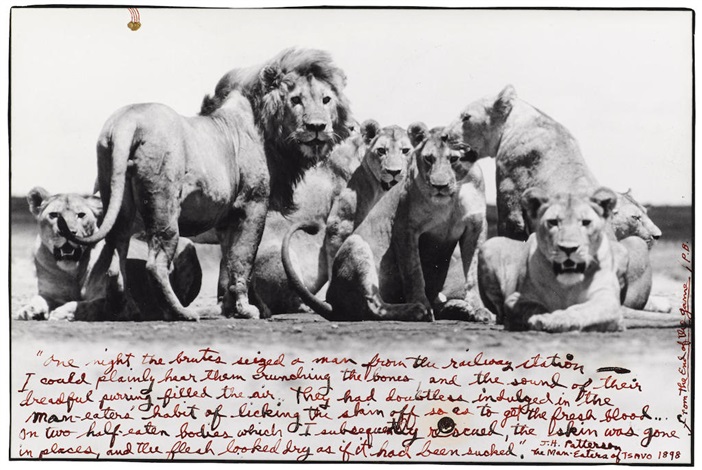 "One night the brutes seized a man from the railway station —
I could plainly hear them crunching the bones, and the sound of their
dreadful purring filled the air. They had doubtless indulged in the
man-eaters' habit of licking the skin off so as to get the fresh blood...
on two half-eaten bodies which I subsequently rescued, the skin was gone
in places, and the flesh looked dry as if it had been sucked."
J.H. Patterson
The Man-Eaters of TSAVO 1898
From the End of the Game / P.B.